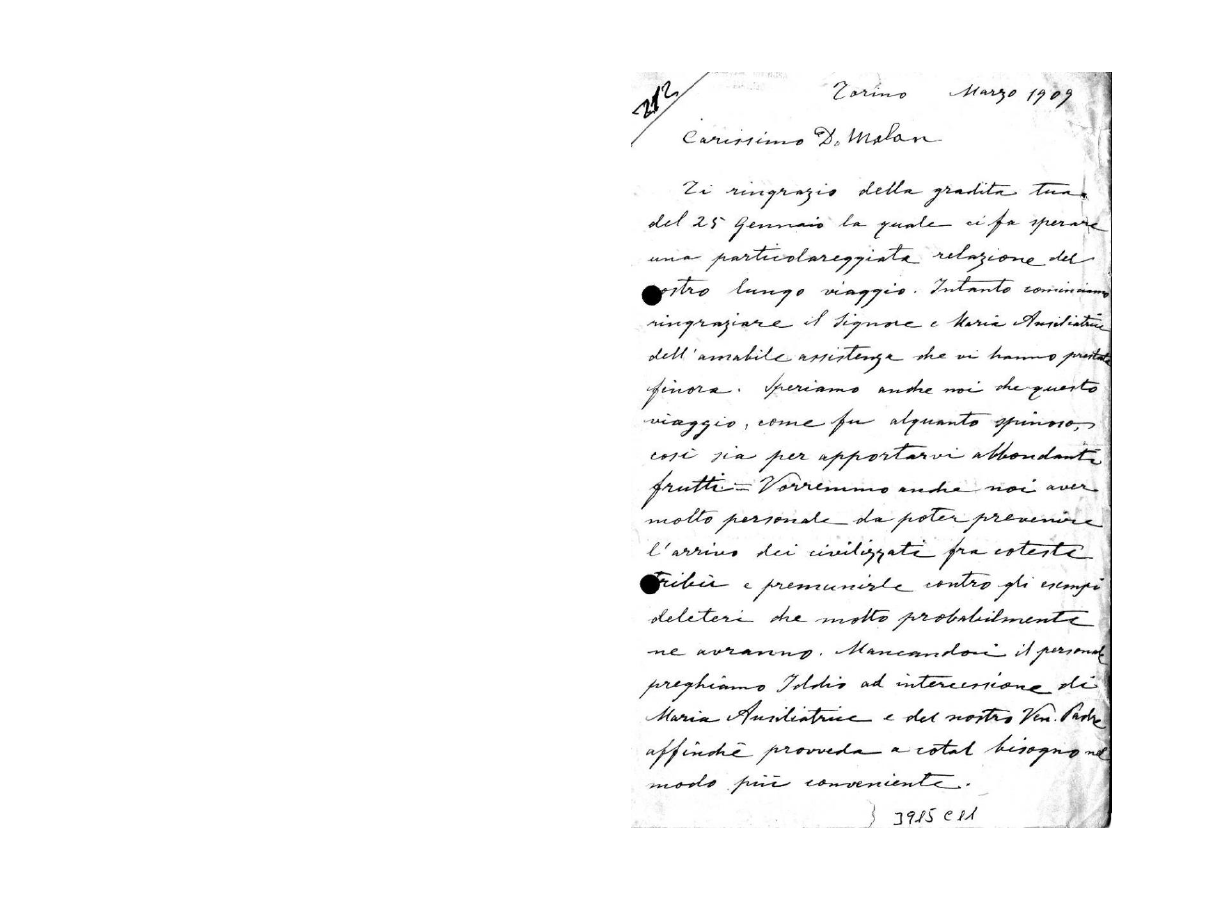 212
Torino Marzo 1909
Carissimo D. Malan
Ti ringrazio della gradita tua
del 25 Gennaio la quale ci fa sperare
una particolareggiata relazione del
vostro lungo viaggio. Intanto cominciamo
ringraziare il Signore e Maria Ausiliatrice
dell'amabile assistenza che vi hanno prestata
finora. Speriamo anche noi che questo
viaggio, come fu alquanto spinoso,
così sia per apportarvi abbondanti
frutti = Vorremmo anche noi aver
molto personale da poter prevenire
l'arrivo dei civilizzati fra coteste
tribù e premunirle contro gli esempi
deleteri che molto probabilmente
ne avranno. Mancandoci il personale
preghiamo Iddio ad intercessione di
Maria Ausiliatrice e del nostro Ven. Padre
affinchè provveda a cotal bisogno nel
modo più conveniente.